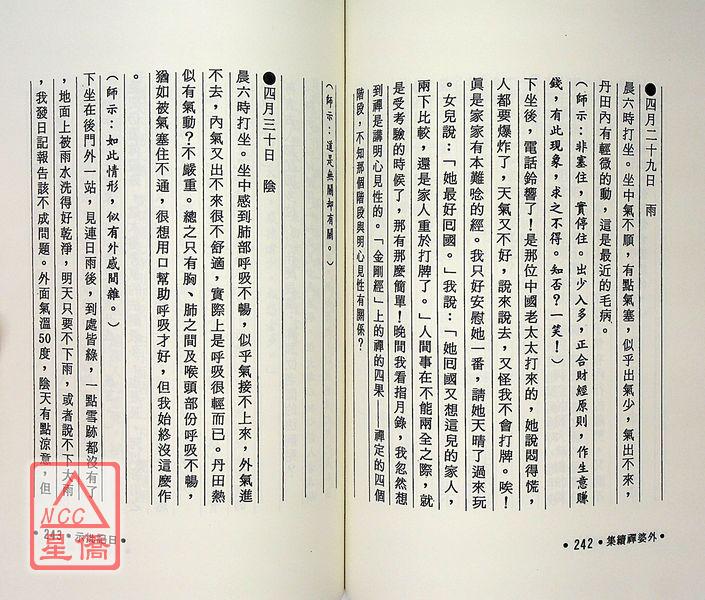 ●四月二十九日　雨
晨六時打坐。坐中氣不順，有點氣塞，似乎出氣少，氣出不來，
丹田內有輕微的動，這是最近的毛病。
（師示：非塞住，實停住。出少入多，正合財經原則，作生意賺
錢，有此現象，求之不得。知否？一笑！）
下坐後，電話鈴響了！是那位中國老太太打來的，她說悶得慌，
人都要爆炸了，天氣又不好，說來說去，又怪我不會打牌。唉！
真是家家有本難唸的經。我只好安慰她一番，請她天晴了過來玩
。女兒說：「她最好囘國。」我說：「她囘國又想這兒的家人，
兩下比較，還是家人重於打牌了。」人間事在不能兩全之際，就
是受考驗的時候了，那有那麼簡單！晚間我看指月錄，我忽然想
到禪是講明心見性的。「金剛經」上的禪的四果——禪定的四個
階段，不知那個階段與明心見性有關係？
•242•外婆禪續集•
（師示：道是無關卻有關。）
●四月三十日　陰
晨六時打坐。坐中感到肺部呼吸不暢，似乎氣接不上來，外氣進
不去，內氣又出不來很不舒適，實際上是呼吸很輕而已。丹田熱
似有氣動？不嚴重。總之只有胸、肺之間及喉頭部份呼吸不暢，
猶如被氣塞住不通，很想用口幫助呼吸才好，但我始終沒這麼作
。
（師示：如此情形，似有外感間雜。）
下坐在後門外一站，見連日雨後，到處皆綠，一點雪跡都沒有了
，地面上被雨水洗得好乾淨，明天只要不下雨，或者說不下大雨
，我發日記報告該不成問題。外面氣溫50度，陰天有點涼意，但
•243•示批記日•
NCC
星僑